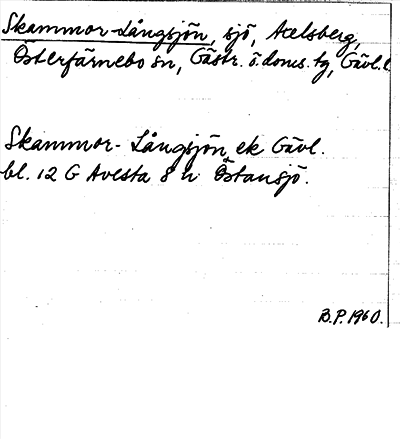 Skammor-Långsjön, sjö, Axelsberg,
Österfärnebo sn, Gästr. ö. doms. tg, Gävl. l
Skammor-Långsjön ek Gävl.
bl. 12 G Avesta 8 n Östansjö.
B.P. 1960.